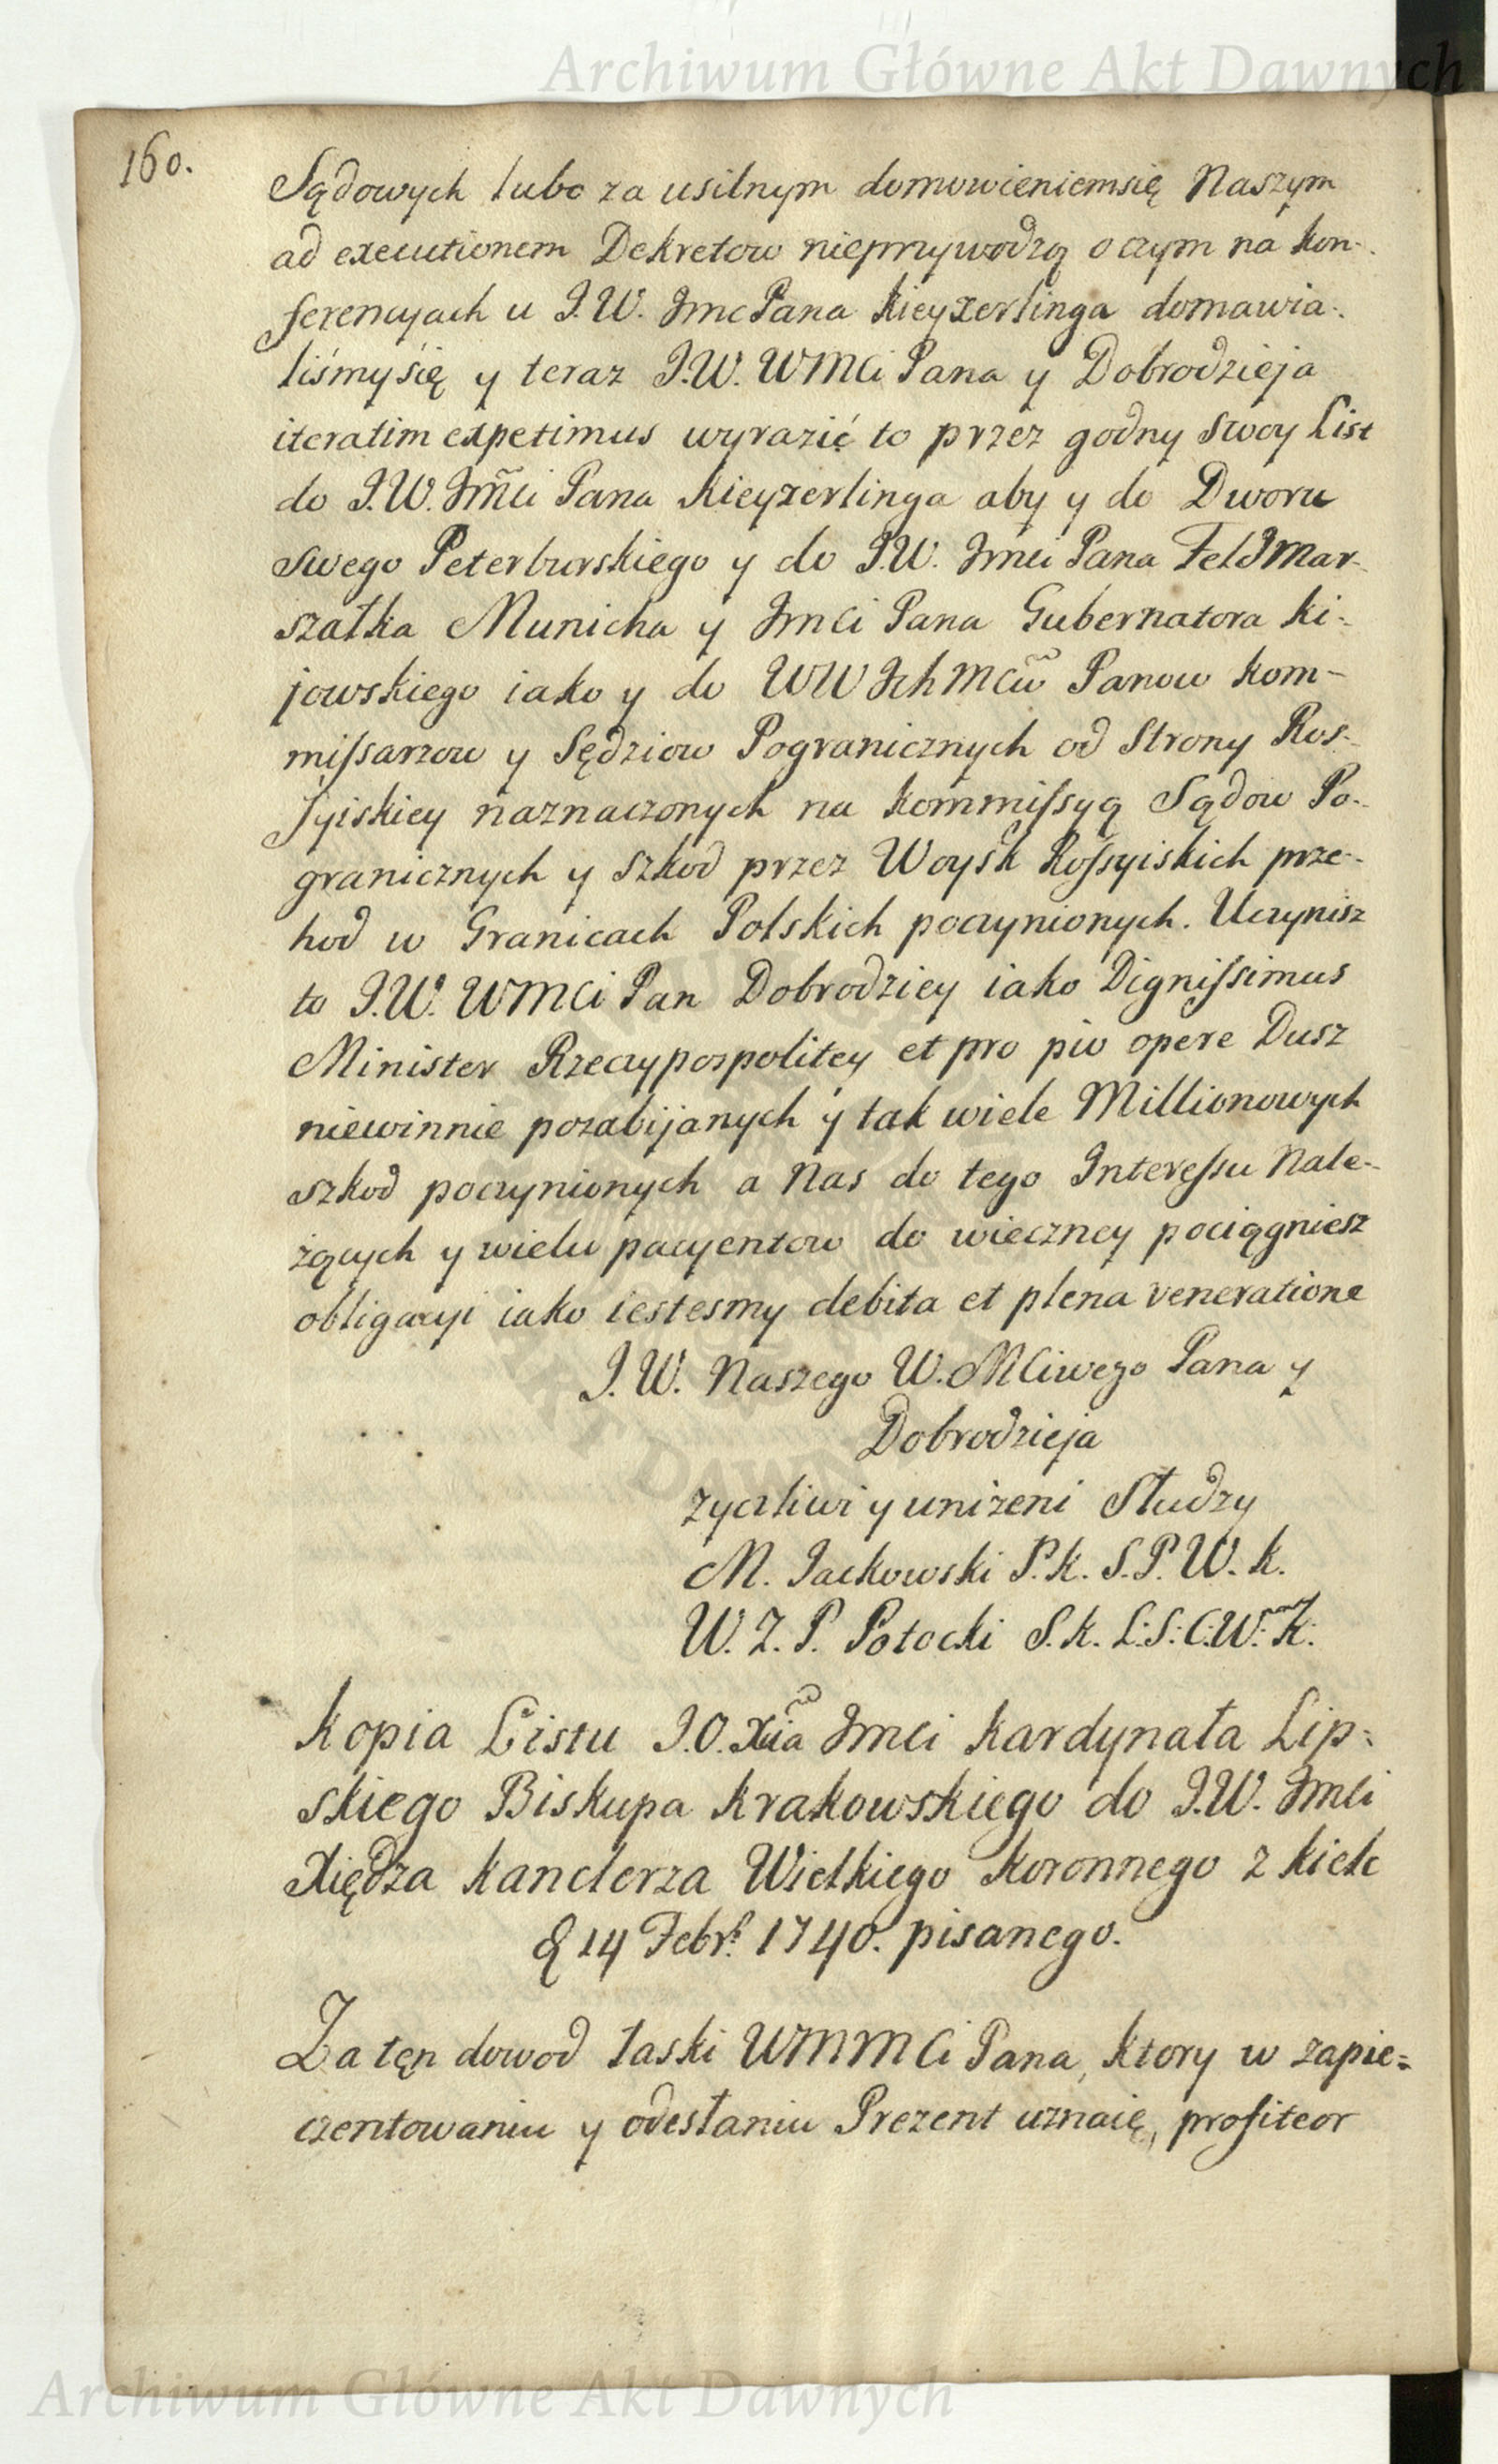 Archiwum Główne Akt Dawnych
160.
Sądowych lubo za usilnym domowieniemsię Naszym
ad executionem Dekretow nieprzywodzą o czym na kon-
ferencyach u J.W. Jmc Pana Kieyzerlinga domawia-
liśmy się y teraz J.W. WMCi Pana y Dobrodzieja
iteratim expetimus wyrazić to przez godny swoy List
do J.W. Jmći Pana Kieyzerlinga aby y do Dworu
Swego Peterburskiego y do J.W. Jmci Pana Feldmar-
szałka Municha y Jmci Pana Gubernatora ki-
jowskiego iako y do WW Jch Mcw Panow kom-
missarzow y Sędziow Pogranicznych od Strony Ros-
syiskiey naznaczonych na kommissyą Sądow Po-
granicznych y szkod przez Woysk Rossyiskich prze-
hod w Granicach Polskich poczynionych. Uczynisz
to J.W. WMCi Pan Dobrodziey iako Dignissimus
Minister Rzeczypospolitey et pro pio opere Dusz
niewinnie pozabijanych y tak wiele Millionowych
szkod poczynionych a Nas do tego Interessu Nale-
żących y wielu pacyentow do wieczney pociągniesz
obligacyi iako iestesmy debita et plena veneratione
J.W. Naszego W. MCiwego Pana y
Dobrodzieja
zyczliwi y uniżeni Słudzy
M. Jackowski P.K. S.P.W.K.
W.Z.P. Potocki S.K. L:S:C:W:K:
Kopia Listu J.O. Xcia Jmci Kardynała Lip=
skiego Biskupa Krakowskiego do J.W. Jmci
Xiędza Kanclerza Wielkiego Koronnego z Kielc
d 14 Febr. 1740. pisanego.
Za tęn dowod łaski WMMCi Pana, ktory w zapie=
czentowaniu y odesłaniu Prezent uznaię, profiteor
Archiwum Główne Akt Dawnych